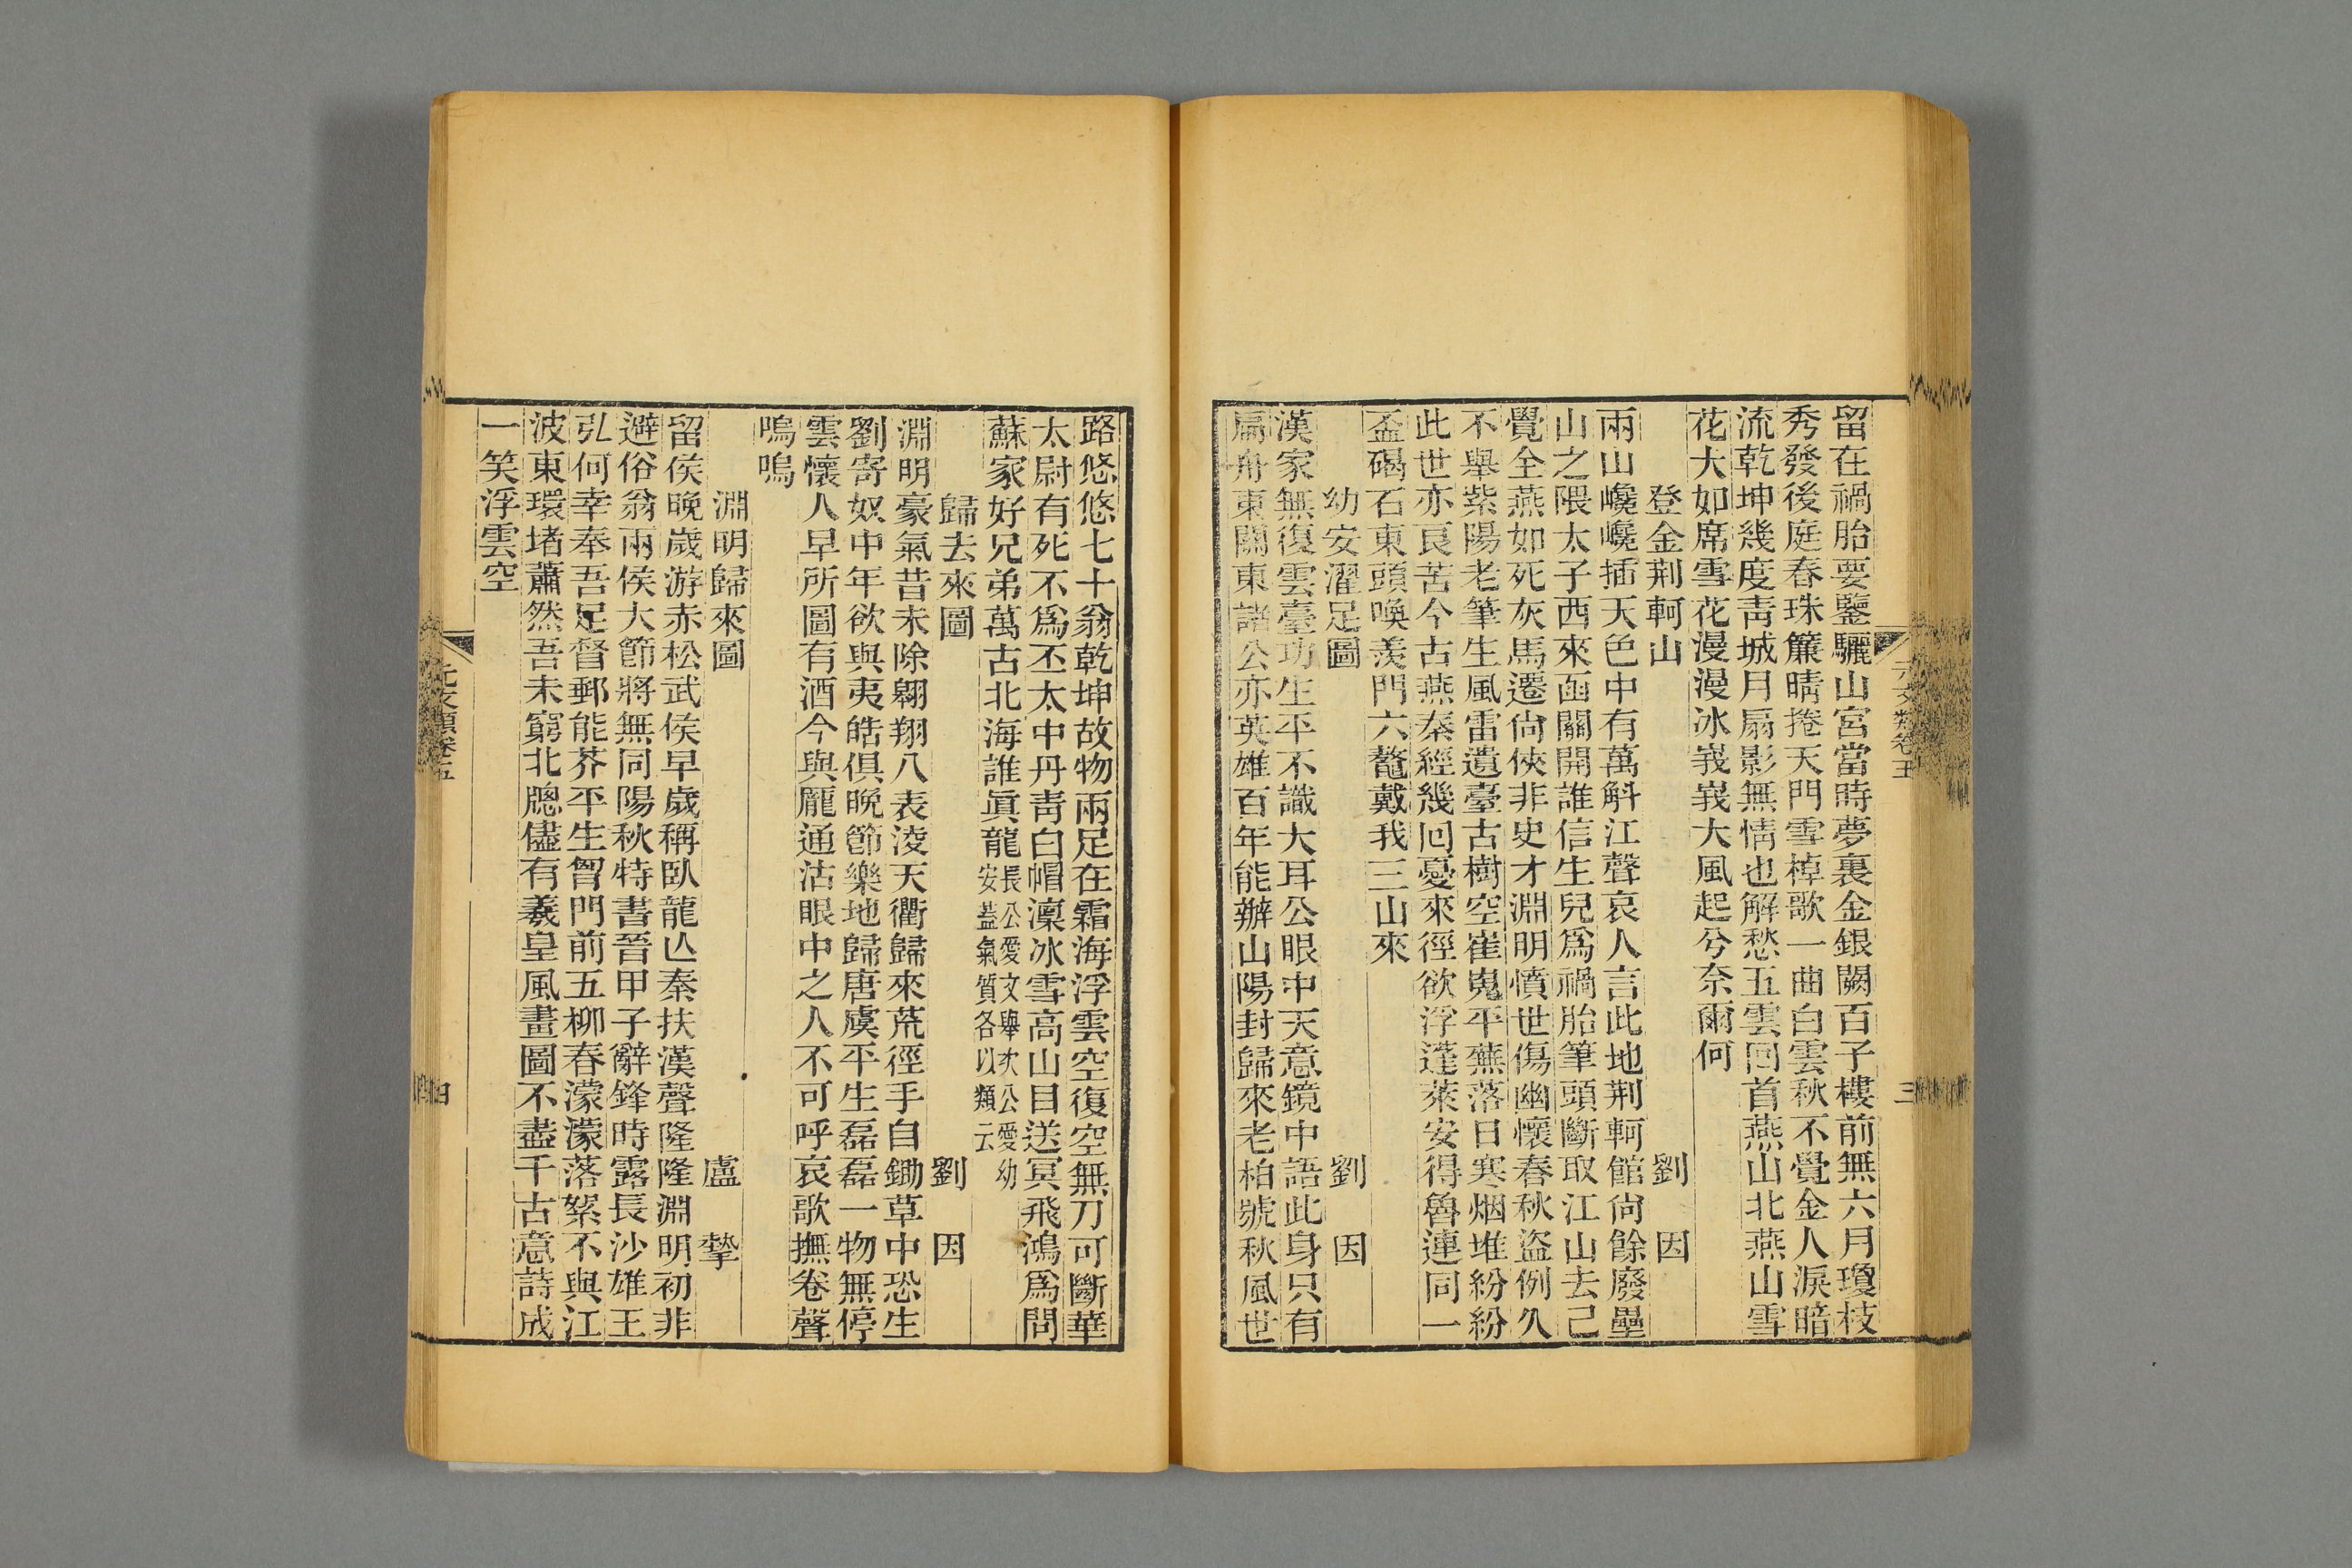 留在禍胎要鑒驪山宮當時夢裏金銀闕百子樓前無六月瓊枝
秀發後庭春珠簾晴捲天門雪棹歌一曲白雲秋不覺金人淚暗
流乾坤幾度靑城月扇影無情也解愁五雲回首燕山北燕山雪
花大如席雪花漫漫冰峩峩大風起兮奈爾何
登金荆軻山 劉因
兩山巉巉插天色中有萬斛江聲哀人言此地荆軻館尙餘廢壘
山之隈太子西來函關開誰信生兒爲禍胎筆頭斷取江山去己
覺全燕如死灰馬遷尙俠非史才淵明憤世傷幽懷春秋盜例久
不舉紫陽老筆生風雷遺臺古樹空崔嵬平蕪落日寒烟堆紛紛
此世亦良苦今古燕秦經幾回憂來徑欲浮蓬萊安得魯連同一
盃碣石東頭喚羨門六鼇戴我三山來
幼安濯足圖 劉因
漢家無復雲臺功生平不識大耳公眼中天意鏡中語此身只有
扁舟東關東諸公亦英雄百年能辦山陽封歸來老柏號秋風世
元文類卷五
三
路悠悠七十翁乾坤故物兩足在霜海浮雲空復空無刀可斷華
太尉有死不爲丕太中丹靑白帽凜冰雪高山目送冥飛鴻爲問
蘇家好兄弟萬古北海誰眞龍長公愛文舉次公愛幼安蓋氣質各以類云
歸去來圖 劉因
淵明豪氣昔未除翺翔八表淩天衢歸來荒徑手自鋤草中恐生
劉寄奴中年欲與夷皓俱晚節樂地歸唐虞平生磊磊一物無停
雲懷人早所圖有酒今與龐通沽眼中之人不可呼哀歌撫卷聲
嗚嗚
淵明歸來圖 盧摯
留侯晚歲游赤松武侯早歲稱臥龍亾秦扶漢聲隆隆淵明初非
避俗翁兩侯大節將無同陽秋特書晉甲子辭鋒時露長沙雄王
弘何幸奉吾足督郵能芥平生胷門前五柳春濛濛落絮不與江
波東環堵蕭然吾未窮北牕儘有羲皇風畫圖不盡千古意詩成
一笑浮雲空
元文類卷五
四